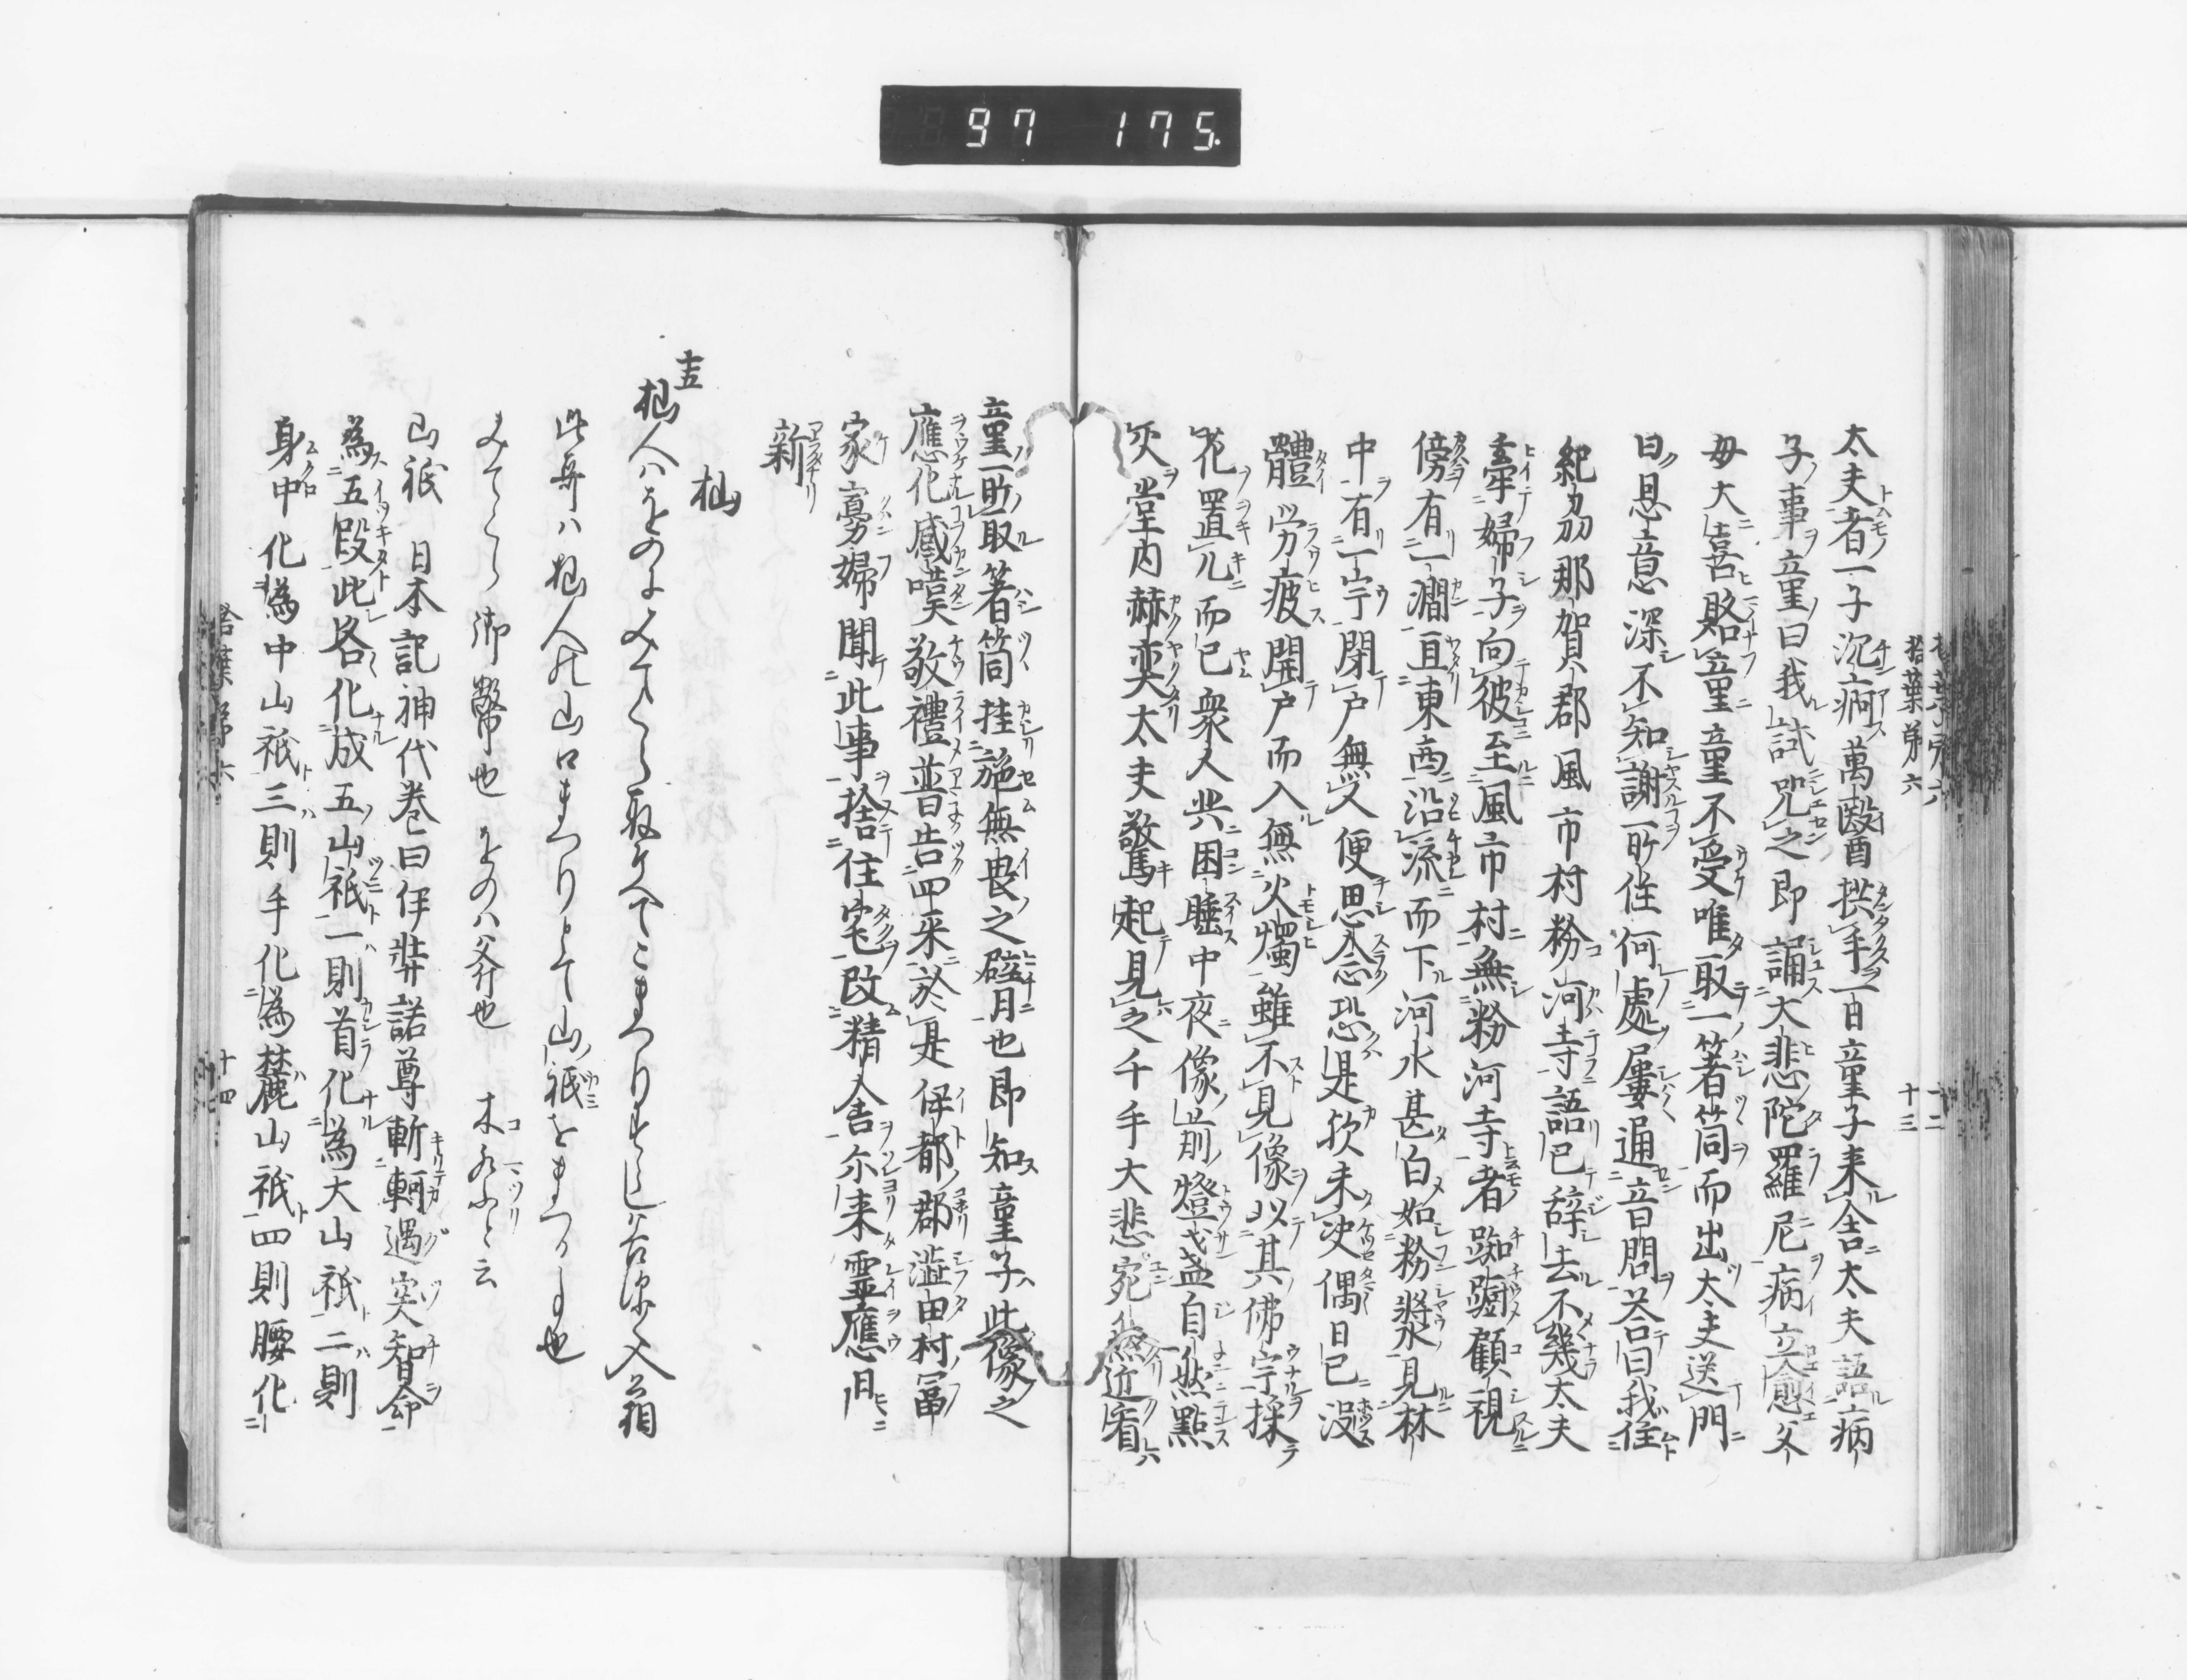 97 175.
拾葉第六 十三
太夫者一子沉痾萬醫拱手一日童子来舎太夫語病
子事童曰我試咒之即誦大悲陀羅尼病立愈父
母大喜賂童童不受唯取一箸筒而出太夫送門
曰恩意深不知謝所住何處屢通音問答曰我住
紀刕那賀郡風市村粉河寺語已辞去不幾太夫
牽婦子向彼至風市村無粉河寺者踟蹰顧視
傍有一澗亘東西沿流而下河水甚白如粉漿見林
中有一宇閉戸無人便思念恐是欤未决偶日已没
體労疲開戸而入無火燭雖不見像以其佛宇採
花置几而已衆人共困睡中夜像前燈盞自然點
灰堂内赫奕太夫驚起見之千手大悲宛然近看
童所取箸筒挂施無畏之臂也即知童子此像之
應化感嘆敬禮普告四来於是伊都郡澁田村冨
家寡婦聞此事捨住宅改精舎尓来霊應日
新
杣
十五
杣人はをのよみてくら取そへてこまつりすらし谷深く入相
此哥ハ杣人の山口まつりとて山祇をまつる事也
みてくら 御幣也 をのハ斧也
山祇 日本記神代巻曰伊弉諾尊斬軻遇突智命
為五段此各化成五山祇一則首化為大山祇二則
身中化為中山祇三則手化為麓山祇四則腰化
拾葉第六 十四